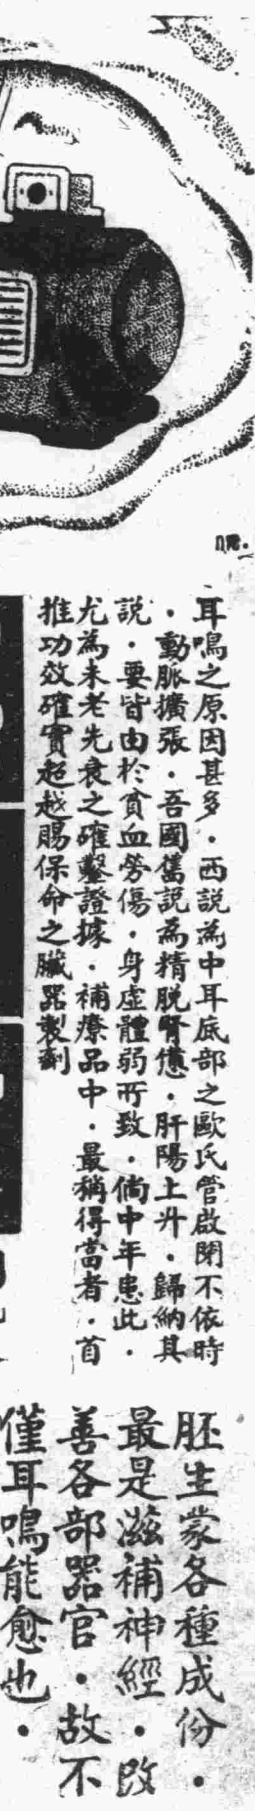 耳鳴之原因甚多．西說為中耳底部之歐氏管啟閉不依時
．動脈擴張．吾國舊說為精脫腎憊．肝陽上升．歸納其
說．要皆由於貧血勞傷．身虛體弱所致．倘中年患此．
尤為未老先衰之確鑿證據．補療品中．最稱得當者．首
推功效確實超越賜保命之臟器製劑
胚生蒙各種成份．
最是滋補神經．改
善各部器官．故不
僅耳鳴能愈也．